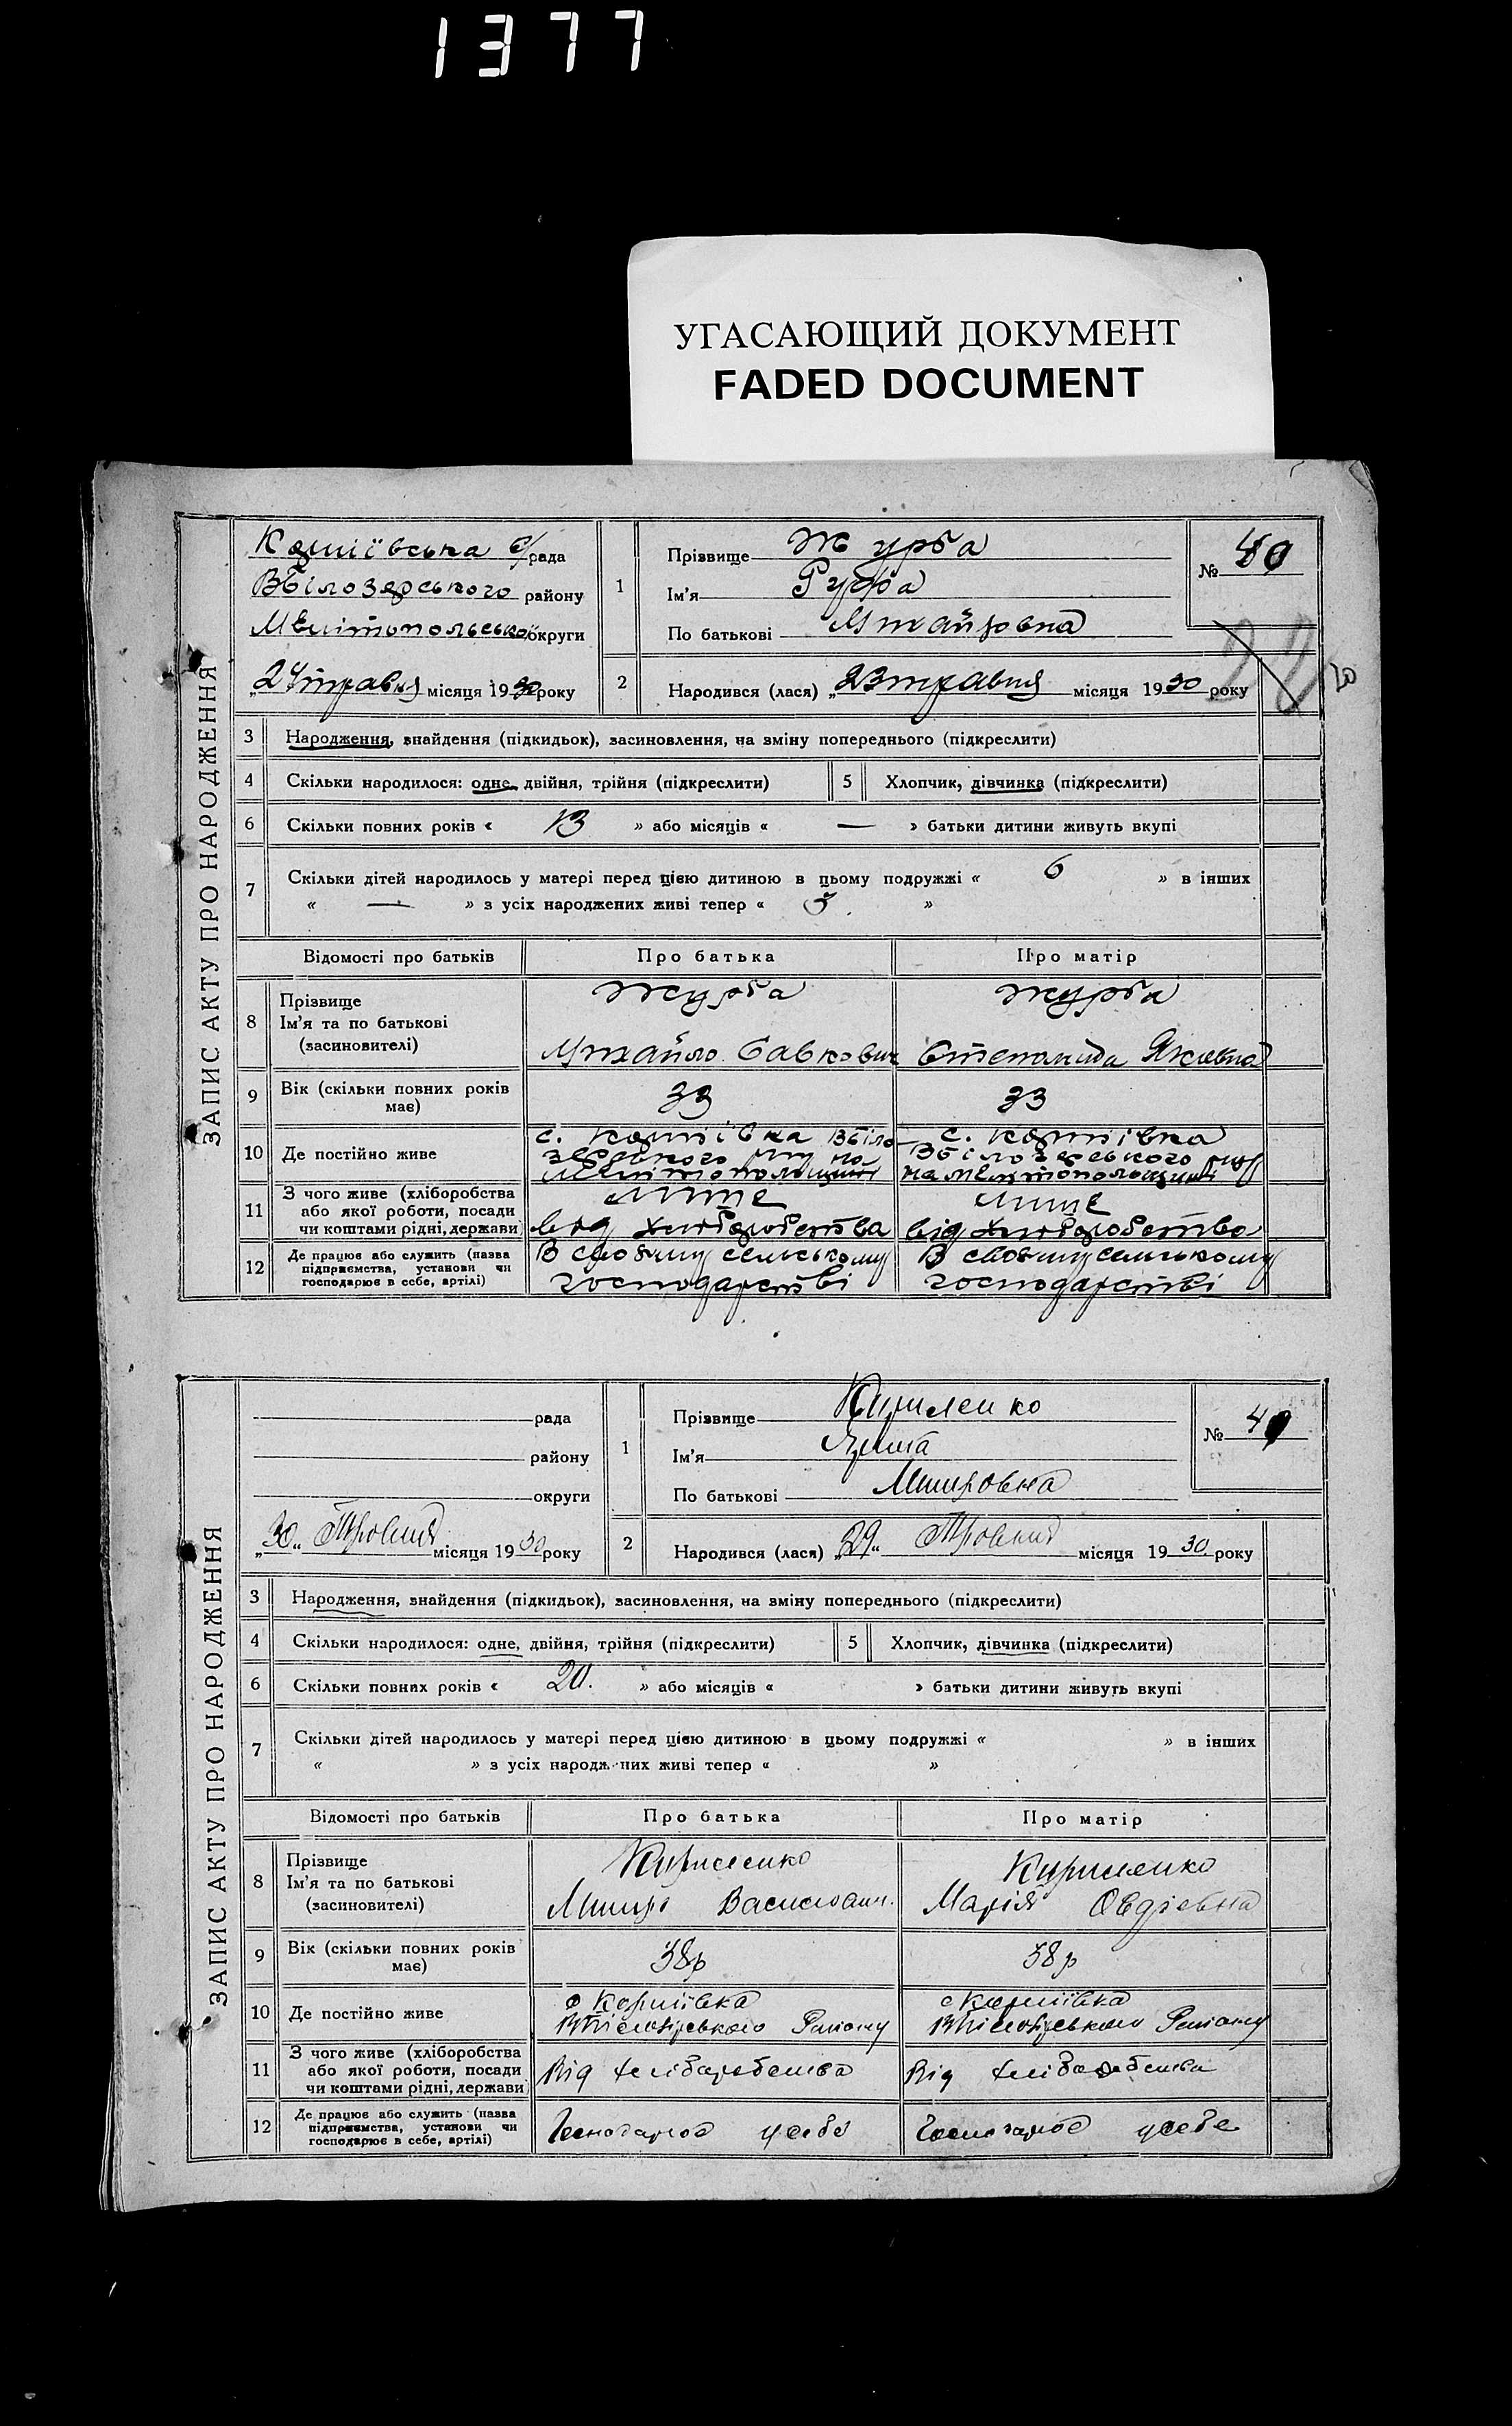 1377
УГАСАЮЩИЙ ДОКУМЕНТ
FADED DOCUMENT
ЗАПИС АКТУ ПРО НАРОДЖЕННЯ
с/рада
Вбілозерського району
Мелітопольської округи
„24 травня місяця 1930 року
1
Прізвище Журба
Ім'я
По батькові Михайловна
№ 40
2
Народився (лася) „23 травня місяця 1930 року
20
3 Народження, знайдення (підкидьок), засиновлення, на зміну попереднього (підкреслити)
4 Скільки народилося: одне, двійня, трійня (підкреслити)
5 Хлопчик, дівчинка (підкреслити)
6 Скільки повних років « 13 » або місяців « — » батьки дитини живуть вкупі
7 Скільки дітей народилось у матері перед цією дитиною в цьому подружжі « 6 » в інших
« — » з усіх народжених живі тепер « 5 »
Відомості про батьків Про батька Про матір
8 Прізвище
Ім'я та по батькові
(засиновителі)
Журба
Михайло Савкович
Журба
Степанида Яковна
9 Вік (скільки повних років має)
33
33
10 Де постійно живе
11 З чого живе (хліборобства або якої роботи, посади чи коштами рідні, держави)
лише
від хліборобства
лише
від хліборобства
12 Де працює або служить (назва підприємства, установи чи господарює в себе, артілі)
В своєму сельському
господарстві
В своєму сельському
господарстві
ЗАПИС АКТУ ПРО НАРОДЖЕННЯ
рада
району
округи
„30“ Травня місяця 1930 року
1
Прізвище Кириленко
Ім'я
По батькові
№ 41
2
Народився (лася) „29“ Травня місяця 1930 року
3 Народження, знайдення (підкидьок), засиновлення, на зміну попереднього (підкреслити)
4 Скільки народилося: одне, двійня, трійня (підкреслити)
5 Хлопчик, дівчинка (підкреслити)
6 Скільки повних років « 20. » або місяців « » батьки дитини живуть вкупі
7 Скільки дітей народилось у матері перед цією дитиною в цьому подружжі « » в інших
« » з усіх народжених живі тепер « »
Відомості про батьків Про батька Про матір
8 Прізвище
Ім'я та по батькові
(засиновителі)
Кириленко
Кириленко
Марія Овдіевна
9 Вік (скільки повних років має)
38р
38р
10 Де постійно живе
11 З чого живе (хліборобства або якої роботи, посади чи коштами рідні, держави)
Від хліборобства
Від хліборобства
12 Де працює або служить (назва підприємства, установи чи господарює в себе, артілі)
Господарює у себе
Господарює у себе